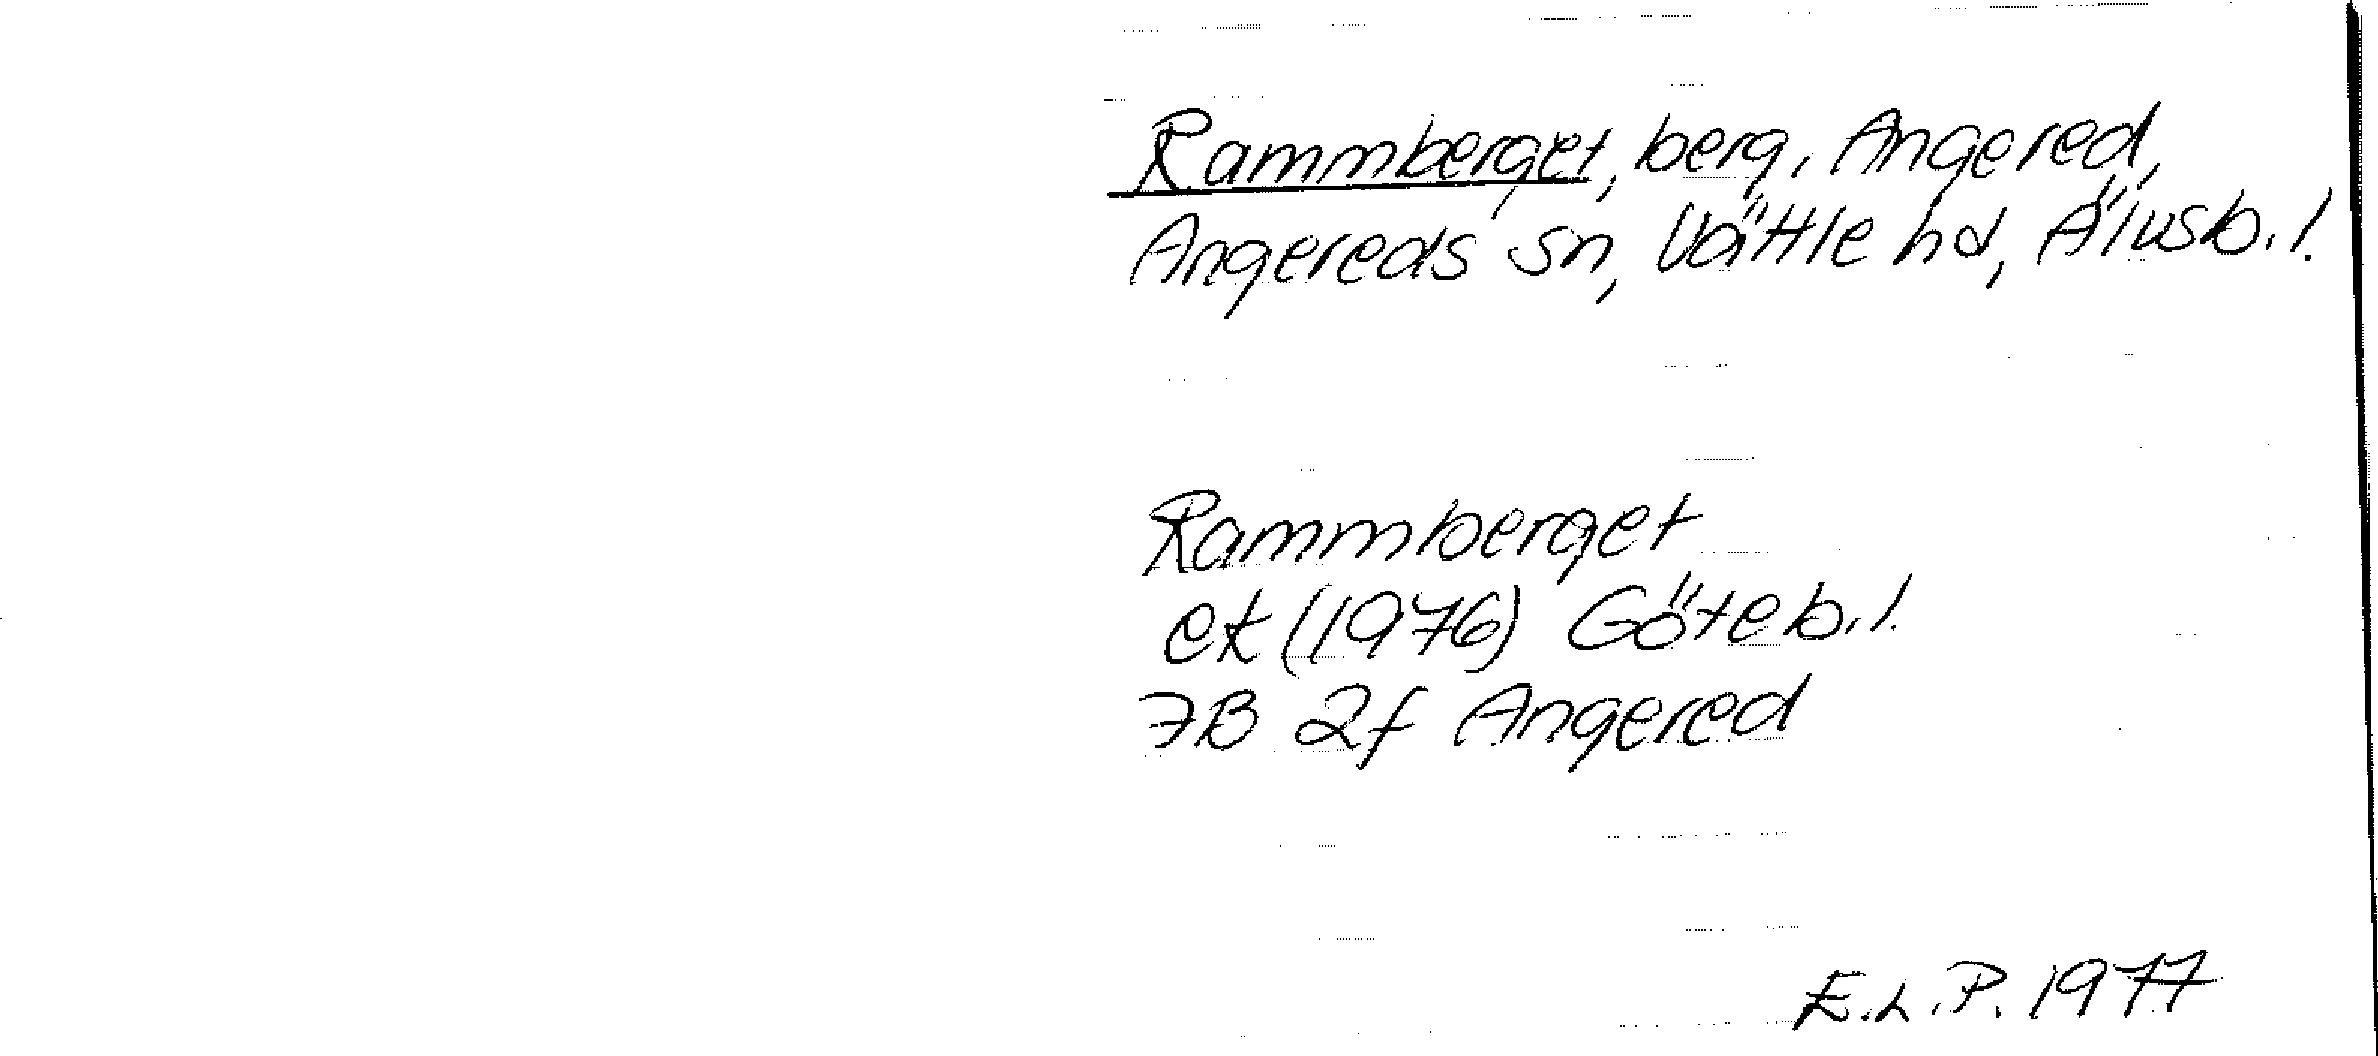 Rammberget, berg, Angered,
Angereds sn, Vättle hd, Älvsb.l.
Rammberget
ek (1976) Göteb.l.
7B 2f Angered
E.L.P. 1977